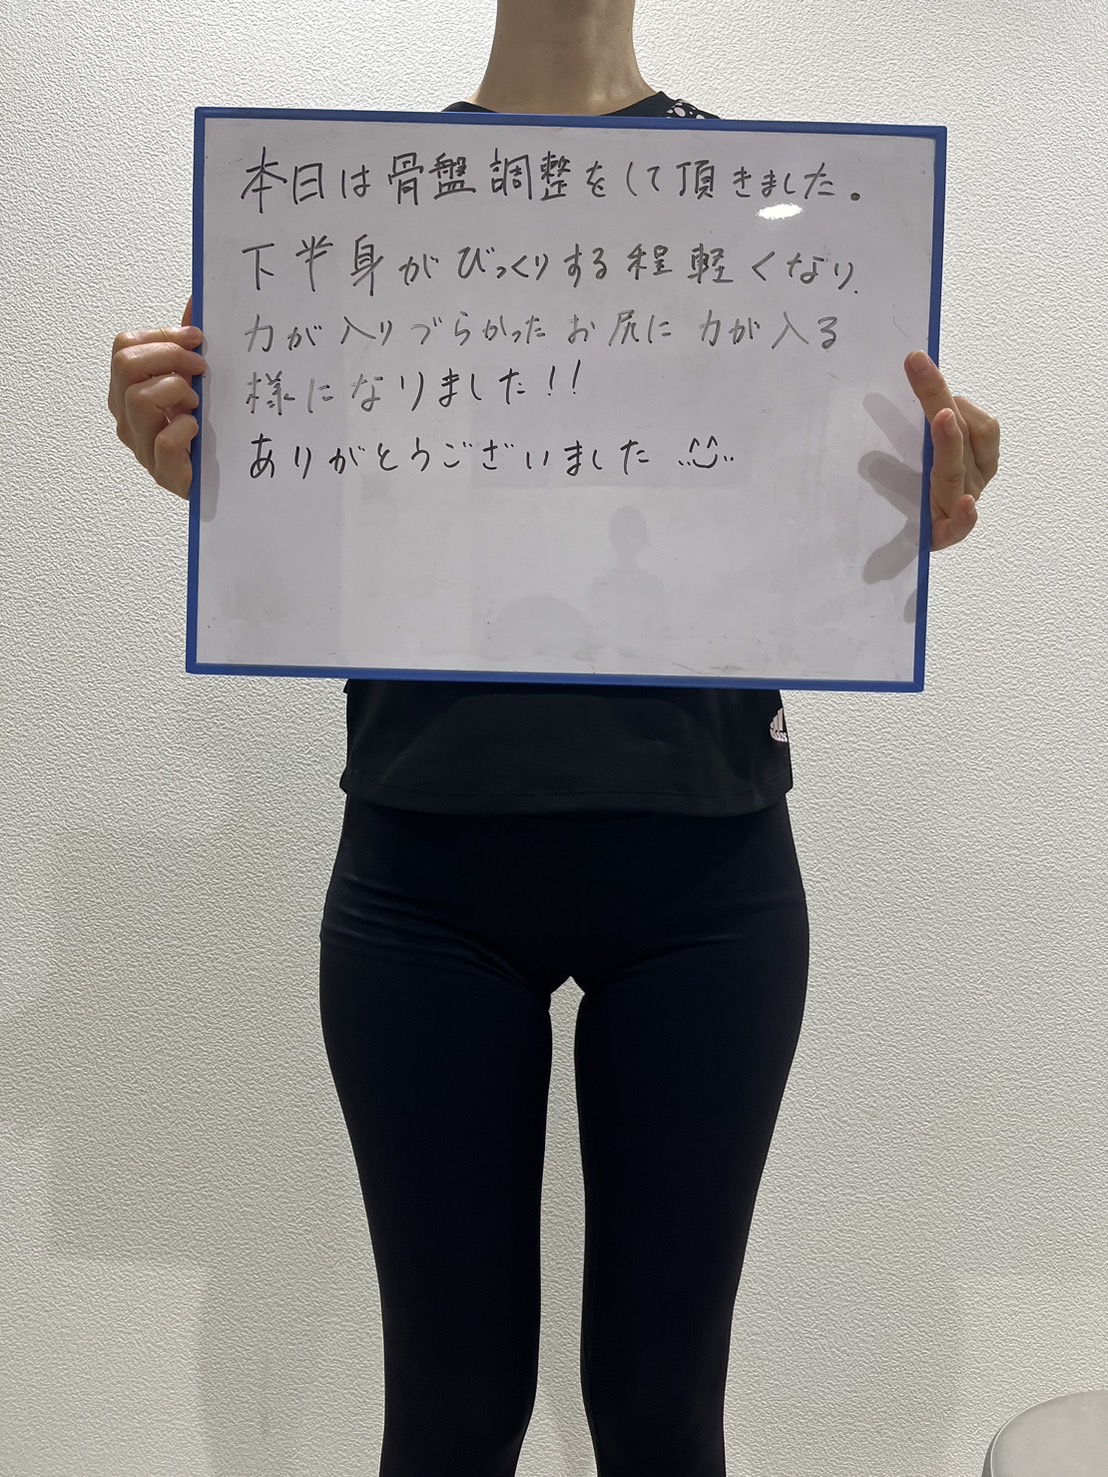 本日は骨盤調整をして頂きました。
下半身がびっくりする程軽くなり、
力が入りづらかったお尻に力が入る
様になりました!!
ありがとうございました